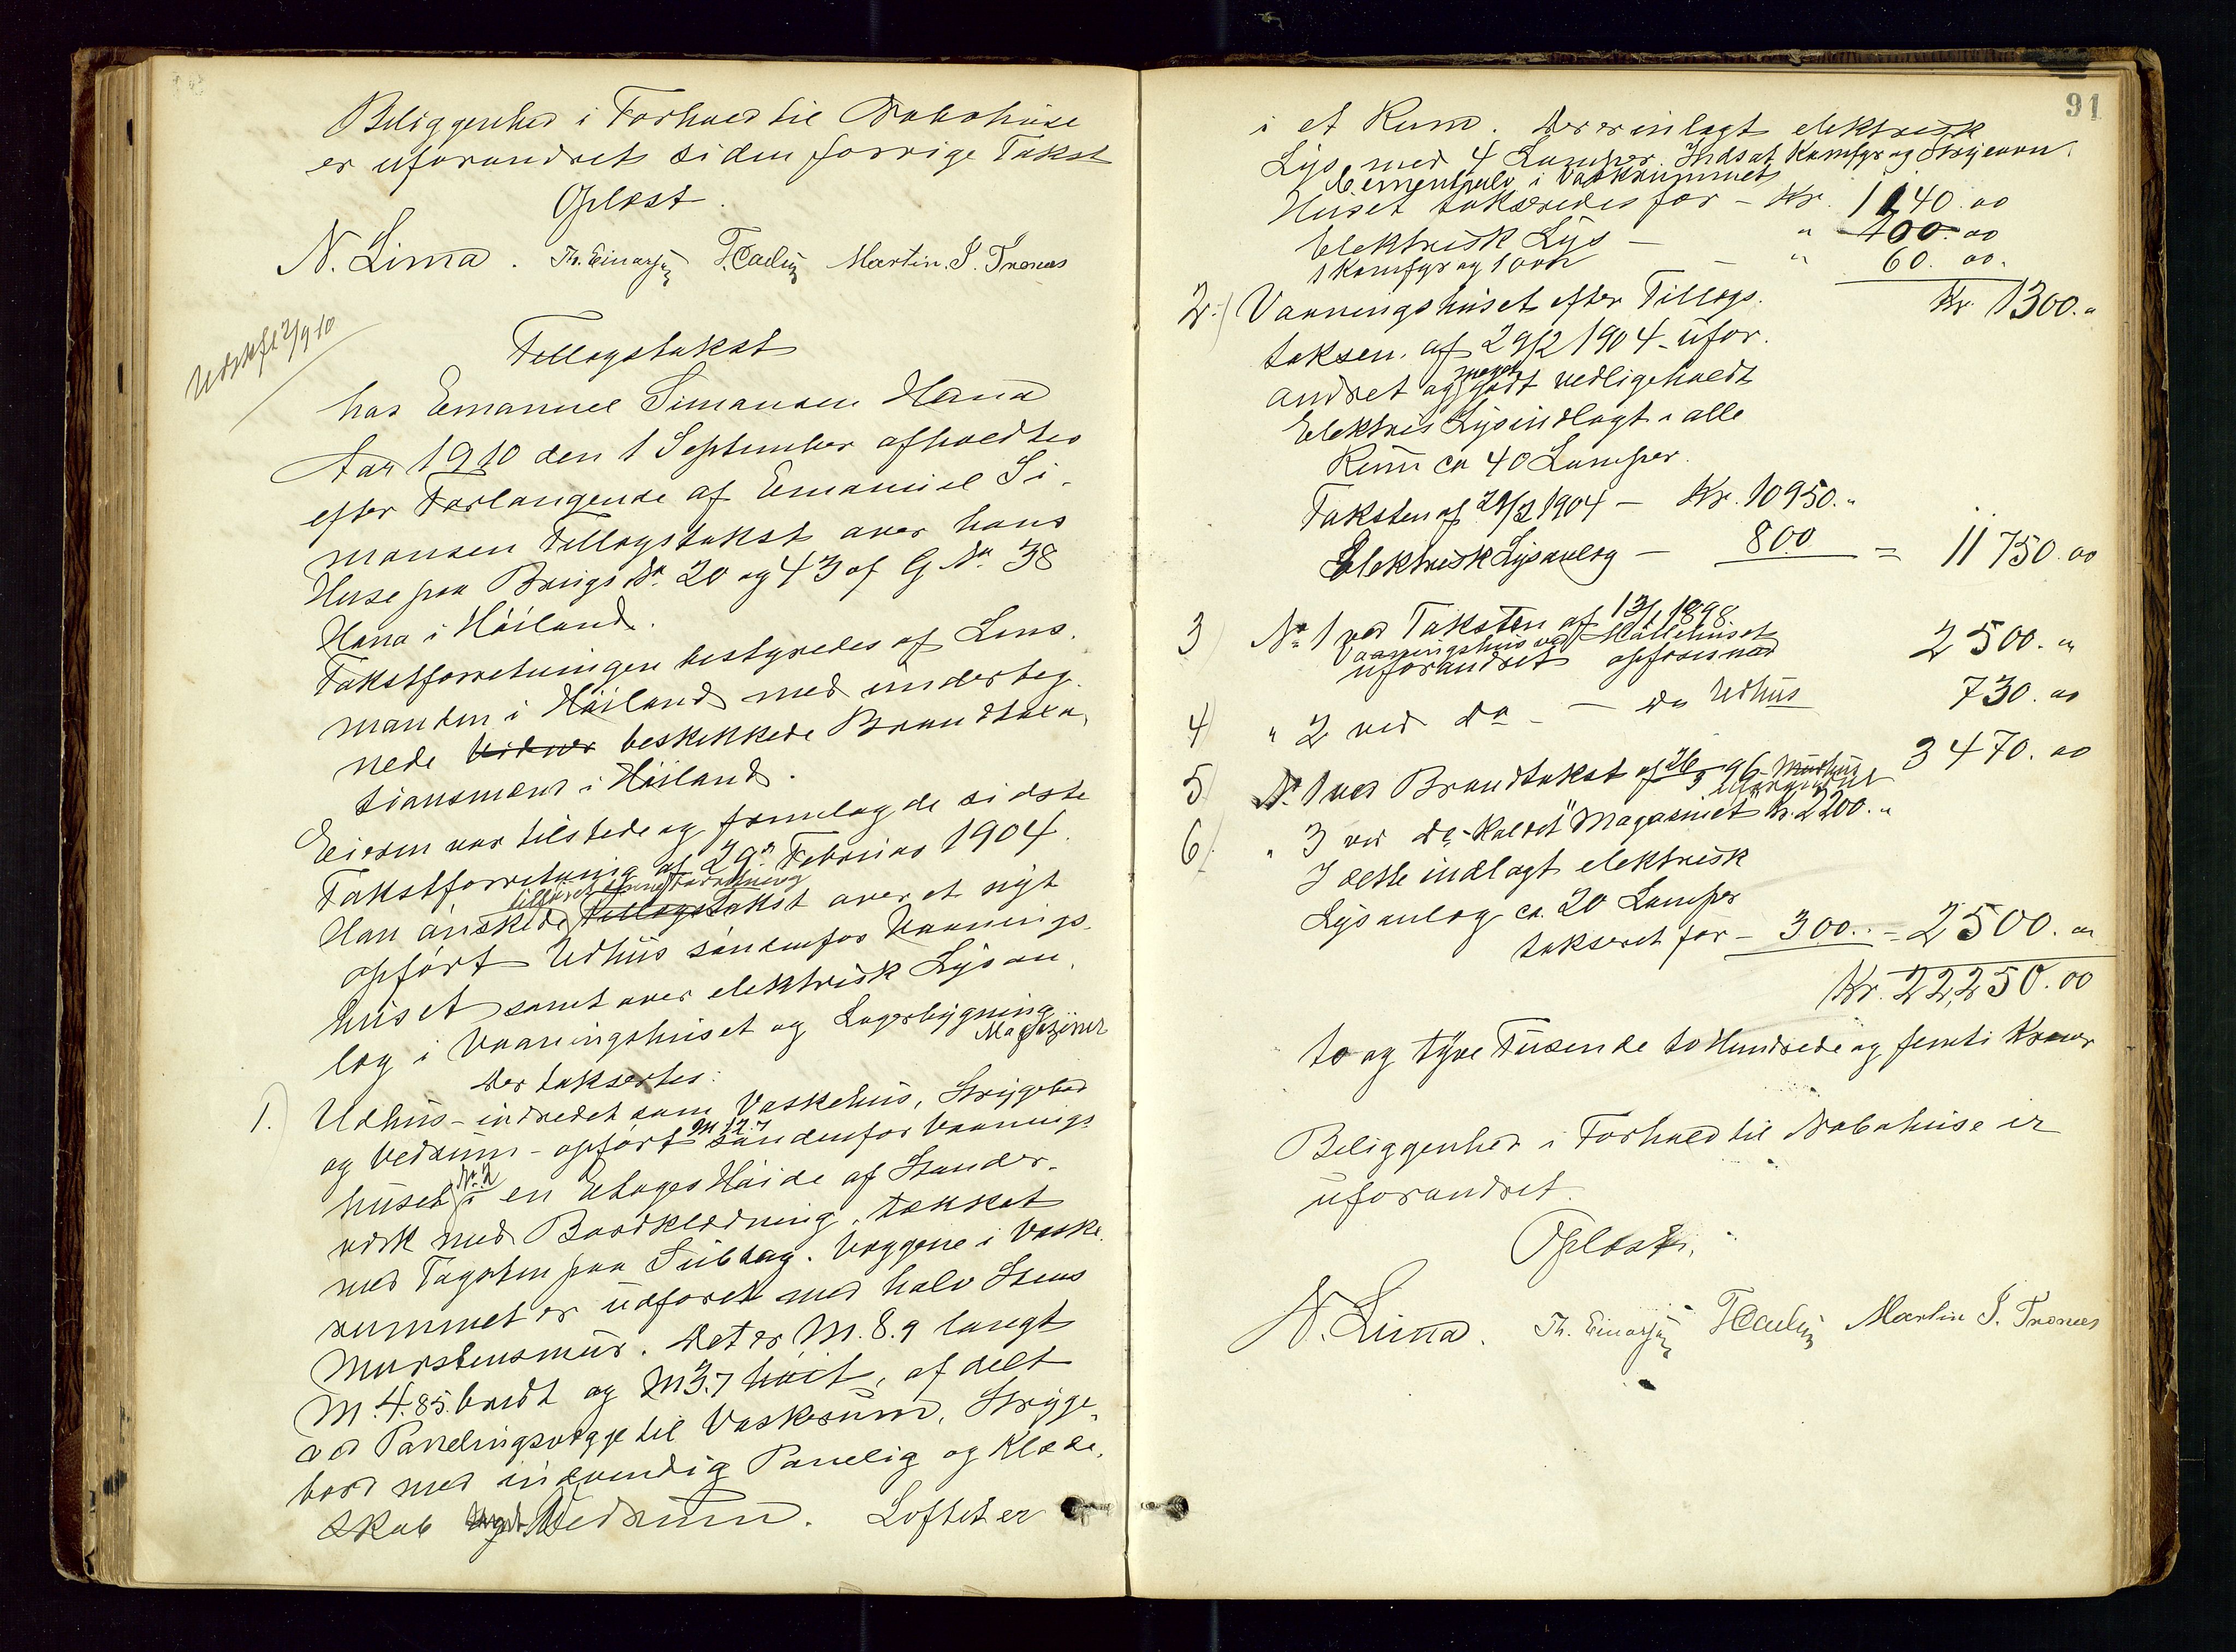 Beliggenhed i Forhold til Nabohuse
er uforandret siden forrige Takst
Oplæst.
N. Lima. Th. Einarsen Martin. S. Tronæs
Udskr. 2/9 10
Tillægstakst
hos Emanuel Simonsen Hana
Aar 1910 den 1 September afholdtes
efter Forlangende af Emanuel Si-
monsen Tillægstakst over hans
Huse paa Brugs No. 20 og 43 af G. No. 38
Hana i Höiland.
Takstforretningen bestyredes af Lens-
manden i Höiland med underteg-
nede Vidner beskikkede Brandtaxa-
tionsmænd i Höiland.
Eieren var tilstede og fremlagde sidste
Takstforretning af 29de Februar 1904.
Han önskede Tillægstakst over et nyt
opfört Udhus söndenfor Vaanings-
huset samt over elektrisk Lysan-
læg i Vaaningshuset og Lagerbygning
Magasinet
Der takseres:
1.) Udhus - indredet som Vaskehus, Strygebod
og Vedrum - opfört M 12.7 söndenfor Vaanings-
huset No. 2 i en Etages Höide af Stender-
verk med Bordklædning, tækket
med Tagsten paa Subtag. Væggene i Vaske-
rummet er udforet med halv Stens
Murstensmur. Det er M. 8.9 langt
M. 4.85. bredt og M 3.7 höit, afdelt
ved Panelingsvægge til Vaskerum, Stryge-
bord med indvendig Panelig og Klæde-
skab Vedrum. Loftet er
91
i et Rum. Der er inlagt elektrisk
Lys med 4 Lamper. Indsat Komfyr og Strygeovn.
Cementgulv i Vaskrummet
Huset takseredes for - Kr. 1140.00
Elektrisk Lys - " 100.00
1 Komfyr og 1 ovn - " 60.00.
Kr 1300."
2.) Vaaningshuset efter Tillægs-
taksen af 29/2 1904 - ufor-
andret og meget godt vedligeholdt
Elektris Lys indlagt i alle
Rum ca 40 Lamper.
Taksten af 29/2 1904 - Kr. 10950."
Elektrisk Lysanlæg - 800 = 11750.00
3) No 1 ved Taksten af 13/1 1898
Vaaningshus ved Möllehuset
uforandret opföres med 2500."
4) " 2 ved do - - do Udhus 730.00
5) No. 1 ved Brandtakst af 26/3 96 uforandret 3470.00
6) " 3 ved do - kaldet "Magasinet" Kr. 2200."
I dette indlagt elektrisk
Lysanlæg ca. 20 Lamper
takseret for - 300.- = 2500.00
Kr. 22,250.00
to og tyve Tusende to Hundrede og femti Kroner
Beliggenhed i Forhold til Nabohuse er
uforandret.
Oplæst.
N. Lima. Th. Einarsen Martin S. Tronæs